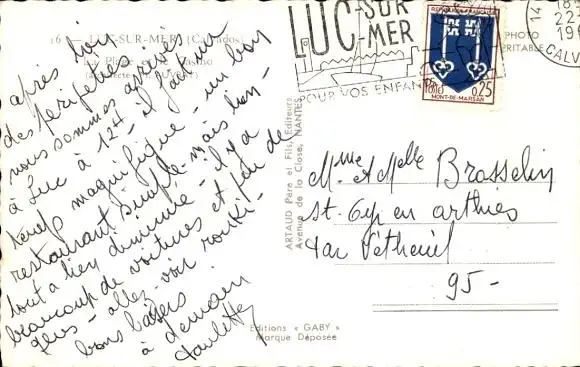 16 - LUC-SUR-MER (Calvados)
La Plage et le Casino
après bien
des péripéties
nous sommes arrivés
à Luc à 12h - il fait un
temps magnifique - un bon
restaurant simple mais bon -
tout a bien diminué - il y a
beaucoup de voitures et peu de
gens - allez voir
bons baisers
à demain
Paulette
Editions « GABY »
Marque Déposée
ARTAUD Père et Fils, Editeurs
Avenue de la Close, NANTES
LUC-SUR-MER
POUR VOS ENFANTS
REPUBLIQUE FRANÇAISE
POSTES 0,25
MONT-DE-MARSAN
14
18
22
19
CALV
PHOTO
VERITABLE
Mme et Melle Brasselin
St. Cyr en arthies
par Vétheuil
95 -